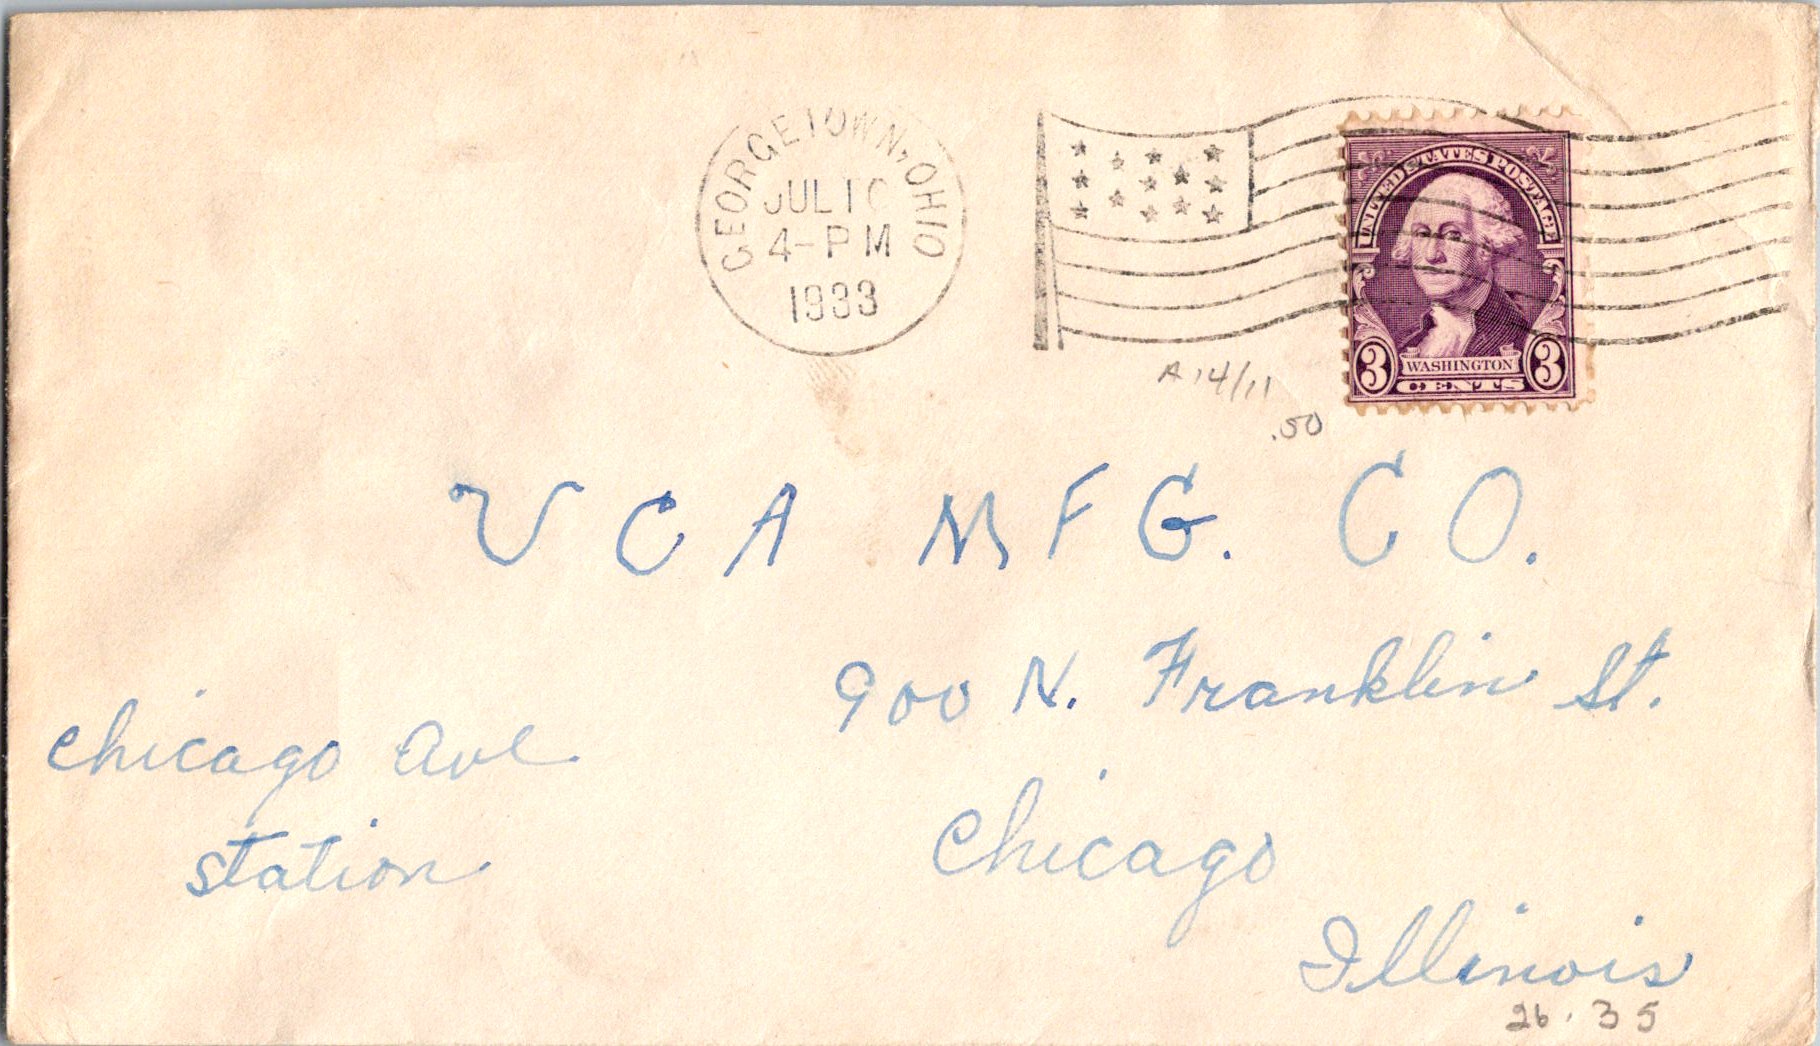 GEORGETOWN, OHIO
JUL 10
4-PM
1933
UNITED STATES POSTAGE
3 WASHINGTON 3
CENTS
A14/11
.50
VCA MFG. CO.
900 N. Franklin St.
Chicago Ave
Station
Chicago
Illinois
26.35